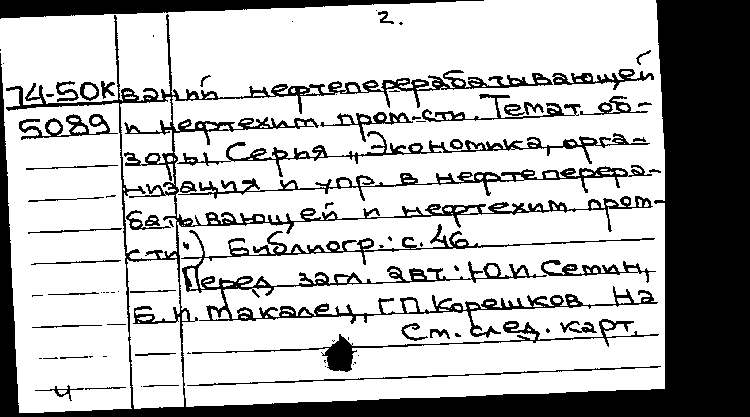 2.
74-50К ваний нефтеперерабатывающей
5089 и нефтехим. пром-сти. Темат. об-
зоры. Серия „Экономика, орга-
низация и упр. в нефтеперера-
батывающей и нефтехим. пром-
сти"). Библиогр.: с. 46.
Перед загл. авт.: Ю.И. Семин,
Б.И. Макалец, Г.П. Корешков. На
См. след. карт.
4